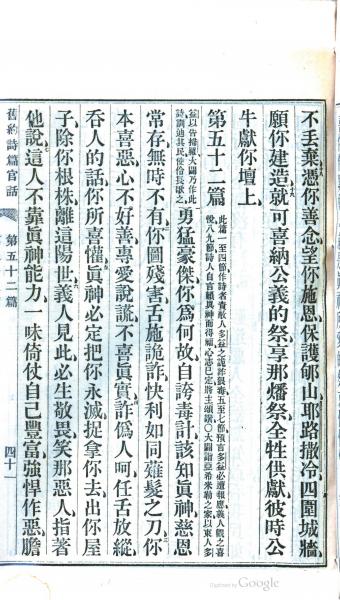 不丟棄憑你善念望你施恩保護郇山耶路撒冷四圍城牆
願你建造就可喜納公義的祭享那燔祭全牲供獻彼時公
牛獻你壇上
第五十二篇
此篇一至四節作詩者責敵人多益之詭詐狠毒五至七節預言多益必遭報應義人觀之喜
悅八九節詩人自言賴眞神而得福心志已定將主頌讚〇大闢詣亞希米勒之家以東人多
益以告掃羅大闢乃作此
詩訓迪其民使伶長歌之
勇猛豪傑你爲何故自誇毒計該知眞神慈恩
常存無時不有你圖殘害舌施詭詐快利如同薙髮之刀你
本喜惡心不好善專愛說謊不喜眞實詐僞人呵任舌放縱
吞人的話你所喜懽眞神必定把你永滅捉拿你去出你屋
子除你根株離這陽世義人見此必生敬畏笑那惡人指著
他說這人不靠眞神能力一味倚仗自己豐富強悍作惡膽
舊約詩篇官話
第五十二篇
四十一
Digitized by Google